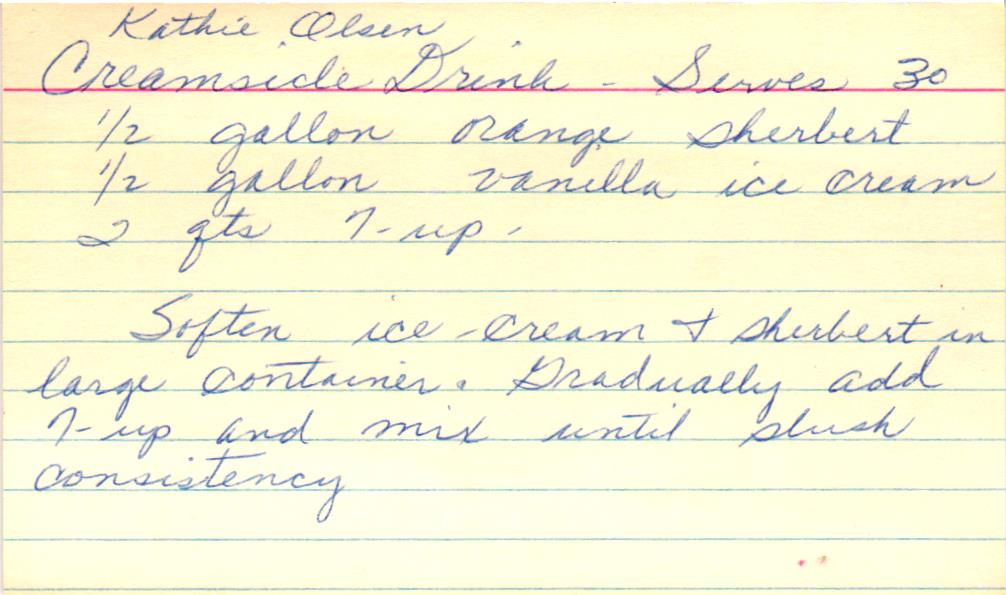 Kathie Olsen
Creamsicle Drink - Serves 30
1/2 gallon orange sherbert
1/2 gallon vanilla ice cream
2 qts 7-up -
Soften ice-cream & sherbert in
large container. Gradually add
7-up and mix until slush
consistency